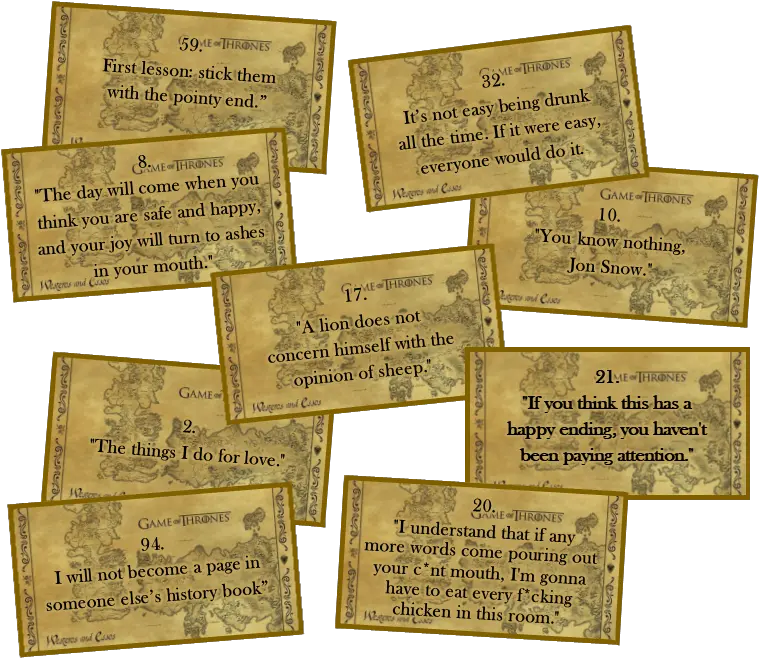 GAME OF THRONES
59.
First lesson: stick them
with the pointy end.”
GAME OF THRONES
32.
It’s not easy being drunk
all the time. If it were easy,
everyone would do it.
Westeros and Essos
GAME OF THRONES
8.
"The day will come when you
think you are safe and happy,
and your joy will turn to ashes
in your mouth."
Westeros and Essos
GAME OF THRONES
10.
"You know nothing,
Jon Snow."
GAME OF THRONES
17.
"A lion does not
concern himself with the
opinion of sheep."
Westeros and Essos
GAME OF THRONES
21.
"If you think this has a
happy ending, you haven't
been paying attention."
GAME
2.
"The things I do for love."
Westeros
GAME OF THRONES
94.
I will not become a page in
someone else’s history book”
Westeros and Essos
GAME OF THRONES
20.
"I understand that if any
more words come pouring out
your c*nt mouth, I'm gonna
have to eat every f*cking
chicken in this room."